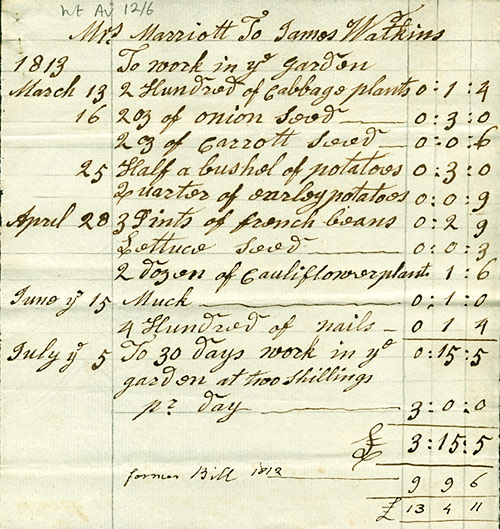 Wt Av 12/6
Mrs Marriott To James Watkins
1813 To work in ye garden
March 13 2 Hundred of Cabbage plants 0:1:4
16 2oz of onion seed 0:3:0
2oz of Carrott seed 0:0:6
25 Half a bushel of potatoes 0:3:0
Quarter of earley potatoes 0:0:9
April 28 3 Pints of french beans 0:2:9
Lettuce seed 0:0:3
2 dozen of Cauliflowerplant 1:6
June ye 15 Muck 0:1:0
4 Hundred of nails 0 1 4
July ye 5 To 30 days work in ye 0:15:5
garden at two shillings
pr day 3:0:0
£ 3:15:5
former Bill 1812 9 9 6
£ 13 4 11